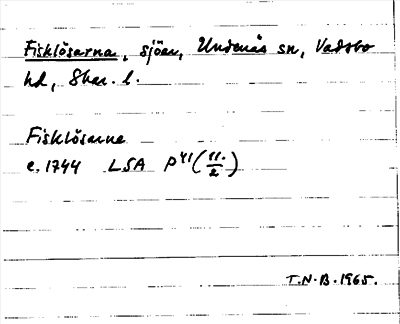 Fisklösarna, sjöar, Undenäs sn, Vadsbo
hd, Skar. l.
Fisklösarne
c. 1744 LSA P41 (11./2)
T.N.B. 1965.